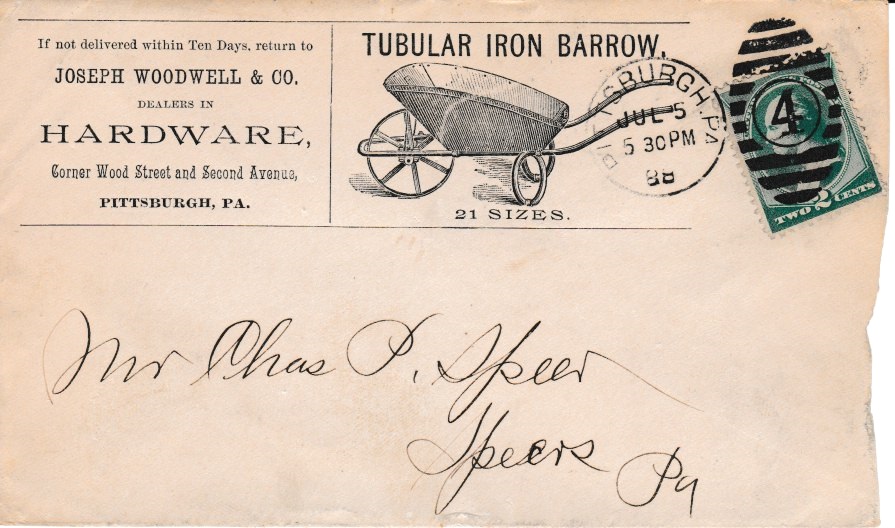 If not delivered within Ten Days, return to
JOSEPH WOODWELL & CO.
DEALERS IN
HARDWARE,
Corner Wood Street and Second Avenue,
PITTSBURGH, PA.
TUBULAR IRON BARROW.
21 SIZES.
PITTSBURGH, PA
JUL 5
5 30 PM
88
4
TWO 2 CENTS
Mr Chas P. Speer
Speers
Pa